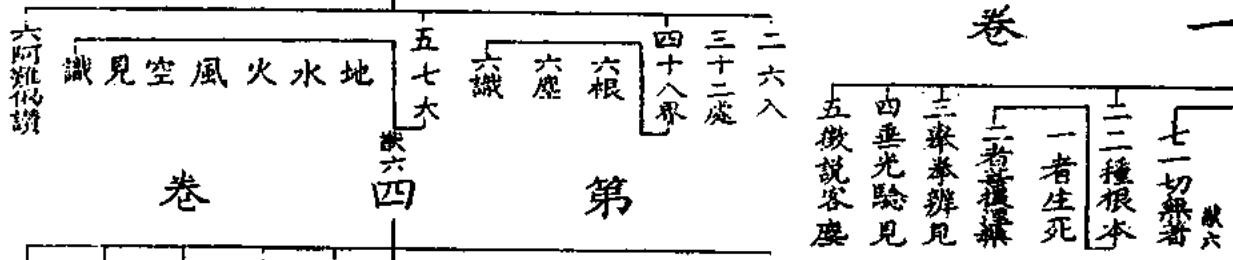 卷一
七一切無著
獻六
二二種根本
一者生死
二者菩提涅槃
三舉拳辨見
四垂光驗見
五徵說客塵
二六入
三十二處
四十八界
六根
六塵
六識
五七大
地
水
火
風
空
見
識
六阿難偈讚
第四卷
獻六